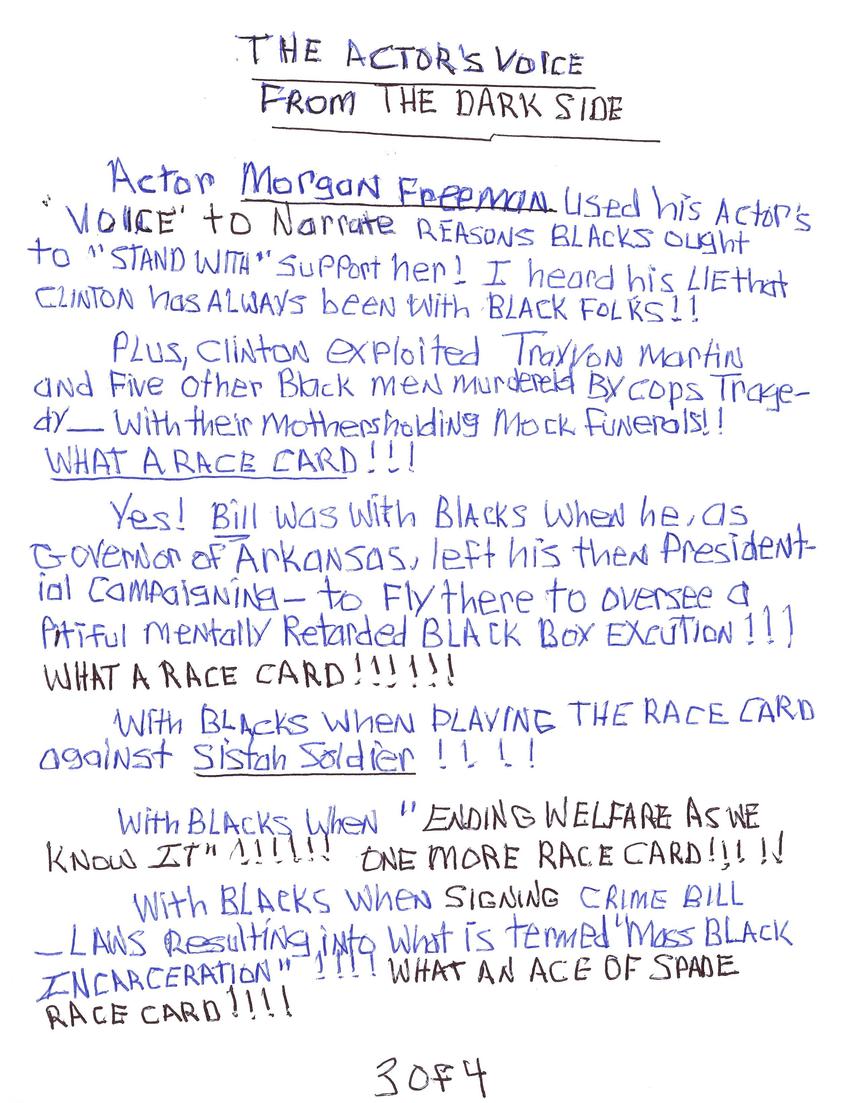 THE ACTOR'S VOICE
FROM THE DARK SIDE
Actor Morgan Freeman used his Actor's
'VOICE' to Narrate REASONS BLACKS ought
to "STAND WITH" support her! I heard his LIE that
CLINTON has ALWAYS been with BLACK FOLKS!!
Plus, Clinton exploited Trayvon Martin
and Five other Black men murdereld By cops Trage-
dy — With their Mothers holding Mock Funerals!!
WHAT A RACE CARD!!!
Yes! Bill was with Blacks when he, as
Governor of Arkansas, left his then President-
ial Campaigning — to Fly there to oversee a
Pitiful Mentally Retarded BLACK BOX EXCUTION!!!
WHAT A RACE CARD!!!!!!
With BLAcks when PLAYING THE RACE CARD
against Sistah Soldier !!!!
With BLACKS when "ENDING WELFARE AS WE
KNOW IT" !!!!!! ONE MORE RACE CARD!!!!!
With BLACKS when SIGNING CRIME BILL
— LAWS Resulting into what is termed "Mass BLACK
INCARCERATION" !!!! WHAT AN ACE OF SPADE
RACE CARD!!!!
3 OF 4